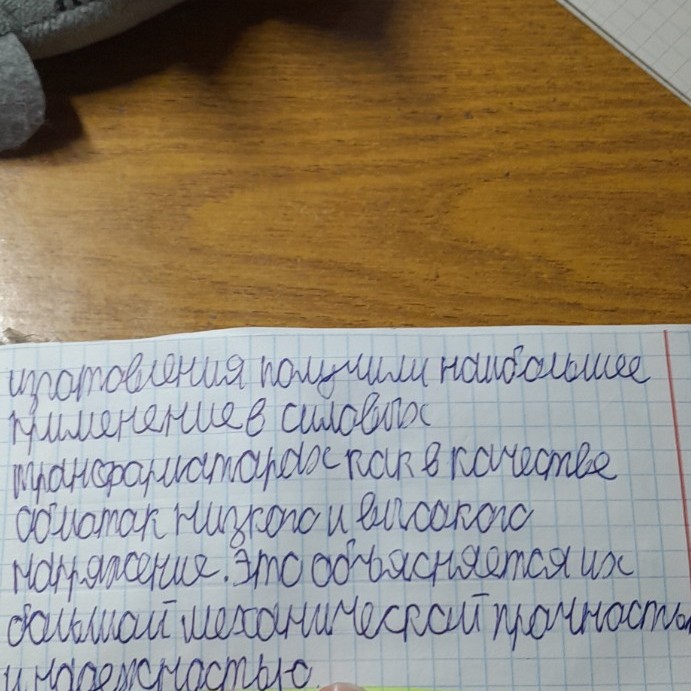 изготовления получили наибольшее
применение в силовых
трансформаторах как в качестве
обмоток низкого и высокого
напряжения. Это объясняется их
большой механической прочностью
и надежностью